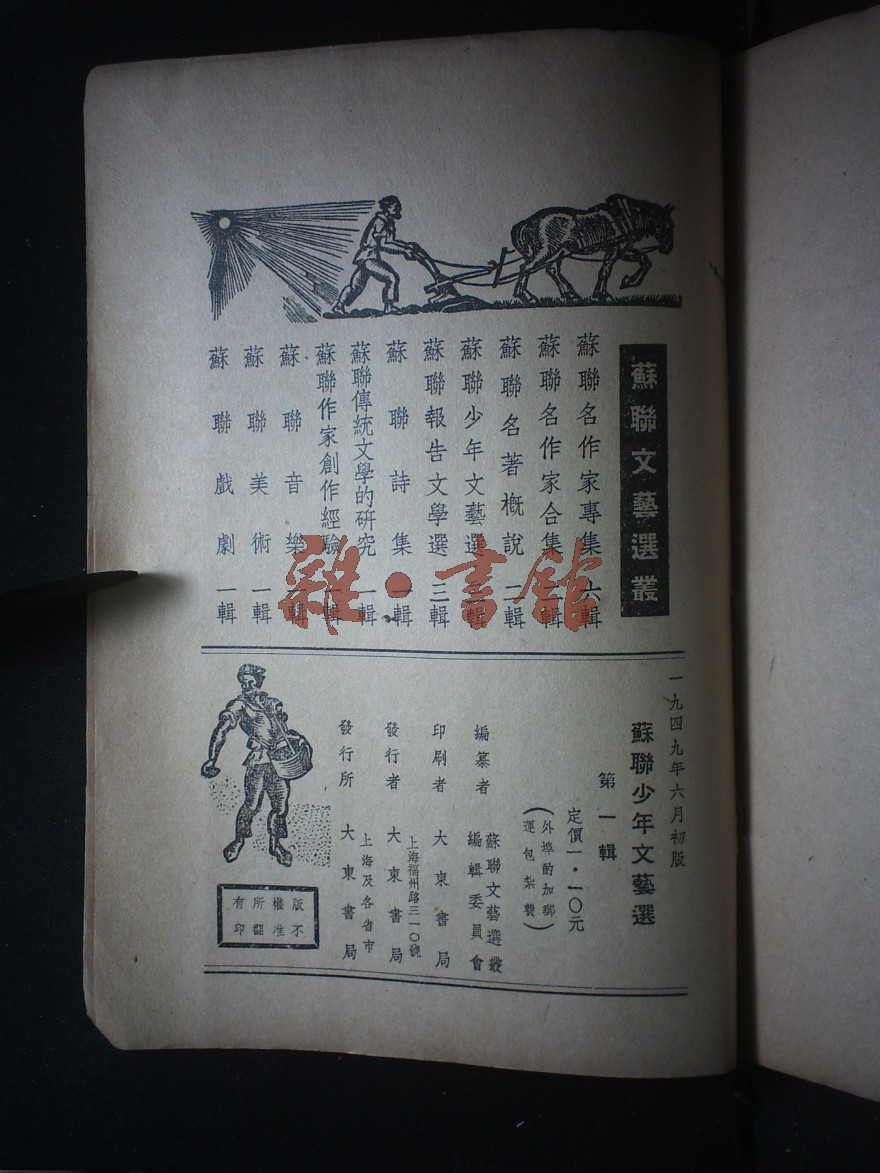 蘇聯文藝選叢
蘇聯名作家專集 六輯
蘇聯名作家合集 輯
蘇聯名著概說 二輯
蘇聯少年文藝選 輯
蘇聯報告文學選 三輯
蘇聯詩集 一輯
蘇聯傳統文學的研究 一輯
蘇聯作家創作經驗 一輯
蘇聯音樂 一輯
蘇聯美術 一輯
蘇聯戲劇 一輯
雜·書館
一九四九年六月初版
蘇聯少年文藝選
第一輯
定價一·一〇元
(外埠酌加郵
運包紮費)
編纂者 蘇聯文藝選叢
編輯委員會
印刷者 大東書局
上海福州路三一〇號
發行者 大東書局
上海及各省市
發行所 大東書局
版權所有
不准翻印